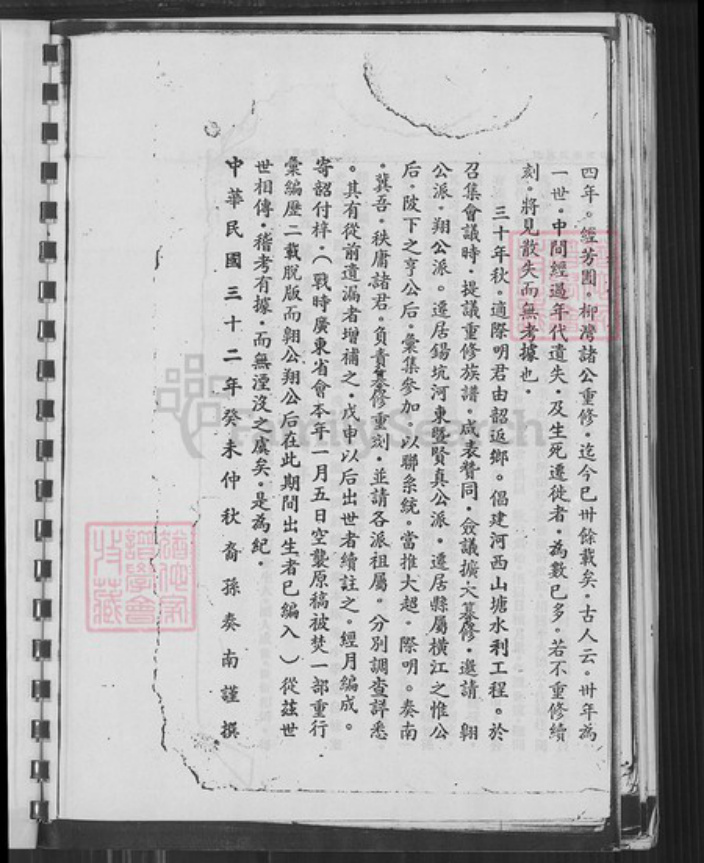 四年。經芳圃・柳灣諸公重修・迄今已卅餘載矣・古人云。卅年為
一世・中間經過年代遺失・及生死遷徙者・為數已多。若不重修續
刻・將見散失而無考據也・
三十年秋・適際明君由韶返鄉。倡建河西山塘水利工程。於
召集會議時・提議重修族譜。咸表贊同・僉議擴大纂修・邀請 翱
公派・翔公派。遷居錫坑河東暨賢真公派・遷居縣屬橫江之惟公
后・陂下之亨公后・彙集參加・以聯系統。當推大超・際明。奏南
・冀吾・秩庸諸君。負責纂修重刻・並請各派祖屬・分別調查詳悉
。其有從前遺漏者增補之・戊申以后出世者續註之。經月編成。
寄韶付梓・(戰時廣東省會本年一月五日空襲原稿被焚一部重行
彙編歷二載脫版而翱公翔公后在此期間出生者已編入)從茲世
世相傳・稽考有據・而無湮没之虞矣・是為紀・
中華民國三十二年癸未仲秋裔孫奏南謹撰
FamilySearch